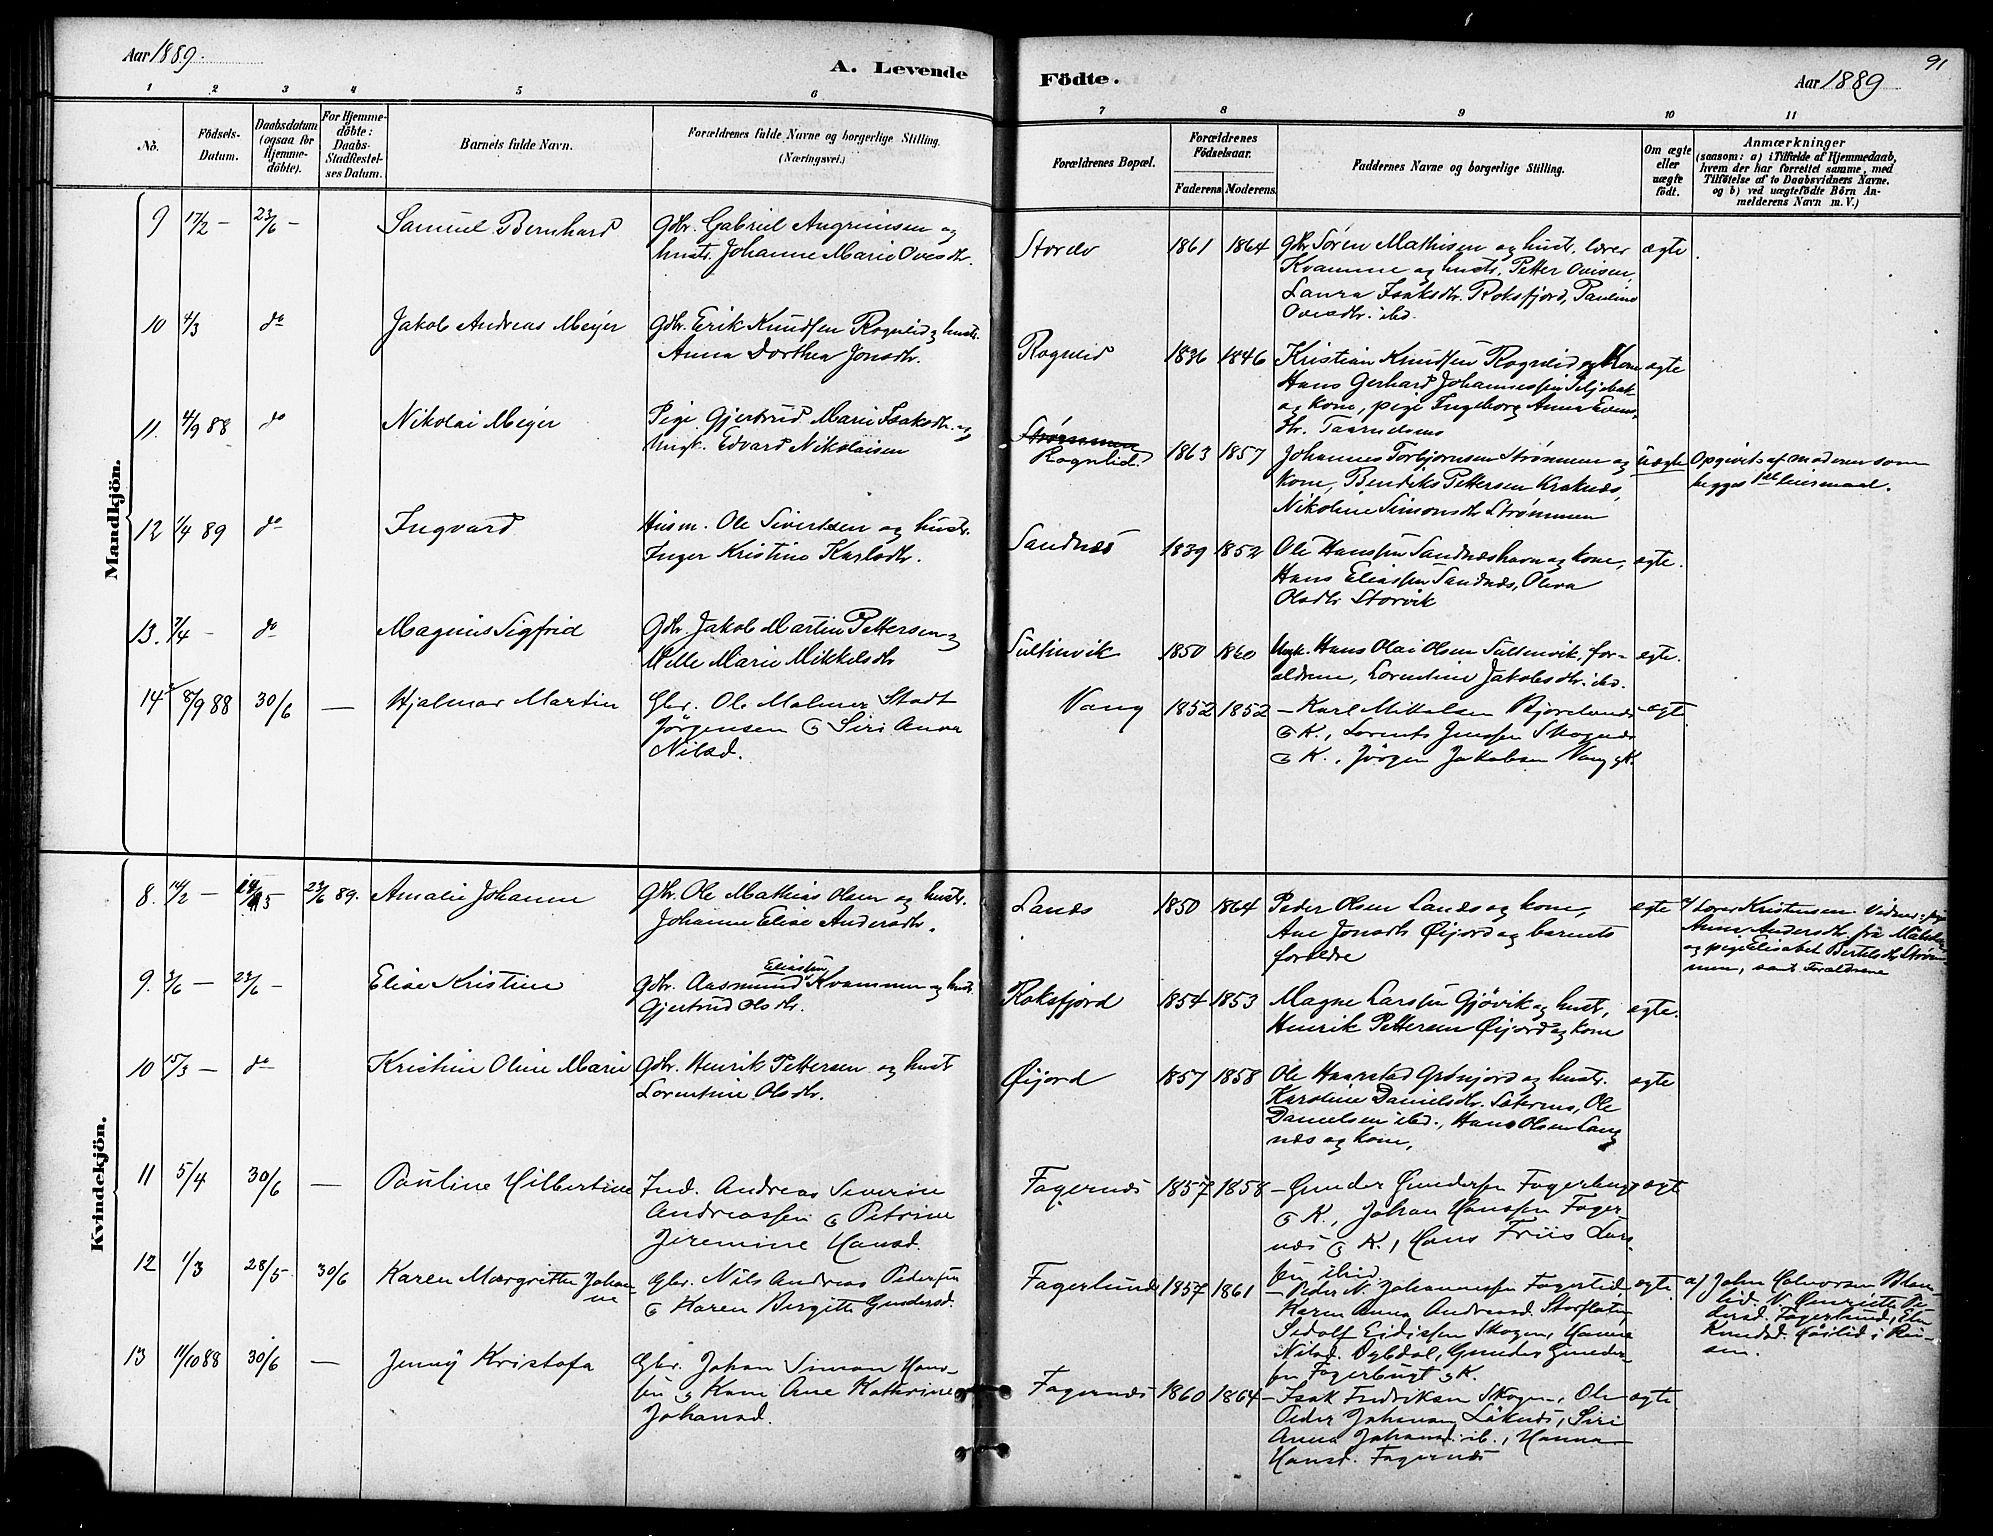 Aar 1889.
A. Levende
Födte.
Aar 1889
91
1 2 3 4 5 6 7 8 9 10 11
No.
Födsels-Datum.
Daabsdatum (ogsaa for Hjemme-döbte).
For Hjemme-döbte: Daabs-Stadfæstel-ses Datum.
Barnets fulde Navn.
Forældrenes fulde Navne og borgerlige Stilling.
(Næringsvei.)
Forældrenes Bopæl.
Forældrenes Födselsaar.
Faderens Moderens
Faddernes Navne og borgerlige Stilling.
Om ægte eller uægte födt.
Anmærkninger
(saasom: a) i Tilfælde af Hjemmedaab,
hvem der har forrettet samme, med
Tilföielse af to Daabsvidners Navne.
og b) ved uægtefödte Börn An-
melderens Navn m. V.)
Mandkjön.
9 17/2 - 23/6 - Samuel Bernhard
Gbr. Gabriel Angrimsen og
hustr. Johanne Marie Ovesdtr.
1861 1864
Gbr Søren Mathisen og hust. lærer
Kvamme og hustr. Petter Ovesen,
Laura Isaksdtr. Roksfjord, Pauline
Ovesdtr. ibd.
ægte
10 4/3 do Jakob Andreas Meijer
Gbr. Erik Knudsen Rognlid og hustr.
Anna Dorthea Jonsdtr.
Rognlid 1836 1846
Kristian Knudsen Rognlid og Kone
Hans Gerhard Johannessen
og kone, pige Ingeborg Anna
dtr.
ægte
11. 4/9 88 do Nikolai Meijer
Pige Gjertrud Marie Isaksdtr. og
Ungk. Edvard Nikolaisen
Strømmen
Rognlid. 1863 1857
Johannes Torbjørnsen Strømmen og
kone, Bendiks Pettersen Kraknes,
Nikoline Simonsdtr Strømmen
uægte
Opgivet af moderen som
begges 1ste leiermaal.
12 1/4 89 do Ingvard
Husm. Ole Sivertsen og hustr.
Inger Kristine Karlsdtr.
Sandnes 1839 1852
Ole Hanssen Sandneshavn og kone,
Hans Eliassen Sandnes, Oleva
Olsdtr Storvik
ægte.
13. 7/4 - do Magnus Sigfrid
Gbr. Jakob Martin Pettersen og
Mille Marie Mikkelsdtr
Sultinvik 1850 1860
Ungk. Hans Olai Olsen Sultenvik, for-
ældrene, Lorentine Jakobsdtr. ibd.
ægte.
14 8/9 88 30/6 — Hjalmar Martin
Gbr. Ole Malmer Stadt
Jørgensen & Siri Anna
Nilsd.
Vang 1852 1852
- Karl Mikalsen
& K., Lorents Jenssen Skognes
& K., Jörgen Jakobsen Vang & K.
ægte
Kvindekjön.
8. 14/2 - 23/6 89. Amalie Johanne
Gbr. Ole Mathias Olsen og hustr.
Johanne Elise Andersdtr.
Lanes 1850 1864
Peder Olsen Lanes og kone,
Ane Jonsdtr Øijord og barnets
forældre
ægte
Lærer Kristensen. Vidner: pige
Anne Andersdtr. fra
og pige Elisabet Bertelsdtr Strøm-
men, samt Forældrene
9. 3/6 - 23/6 - Elise Kristine
Gbr. Aasmund Eliassen Kvammen og hustr.
Gjertrud Olsdtr.
Roksfjord 1854 1853
Magne Larssen Gjövik og hustr,
Henrik Pettersen Øijord og kone
ægte.
10 15/3 - do Kristine Oline Marie
Gbr. Henrik Pettersen og hustr
Lorentine Olsdtr.
Øijord 1857 1858
Ole Haarstad Grønjord og hustr.
Karoline Danielsdtr. Sæternes, Ole
Danielsen ibd., Hans Olsen Lang
nes og kone,
ægte
11 5/4 30/6 — Pauline Hilbertine
Ind. Andreas Severin
Andreassen & Petrine
Jeremine Hansd.
Fagernes 1857 1858
- Gunder Gundersen Fagerbugt
& K., Johan Hanssen Fager-
nes & K., Hans Friis Lars-
sen ibid
ægte
12 1/3 28/5 30/6 Karen Margrethe Johan-
ne
Gbr. Nils Andreas Pedersen
& Karen Birgitte Gundersd.
Fagerlund 1857 1861
- Peder N. Johannessen Fagerlid,
Karen Anna Andreasd. Storslaten,
Sedolf Eidissen Skogen, Hanna
Nilsd. Dybdal, Gunder Gunder-
sen Fagerbugt & K.
ægte.
a) John Halvorsen
lid. V. Henriette Pe-
dersd. Fagerlund,
Knudsd.
13 11/10 88 30/6 — Jenny Kristofa
Gbr. Johan Simon Hans-
sen & Kone Ane Kathrine
Johansd.
Fagernes 1860 1864
- Isak Fredriksen Skogen, Ole
Peder Johansen Löknes, Siri
Anna Johansd. ib., Hanna
Hansd. Fagernes
ægte